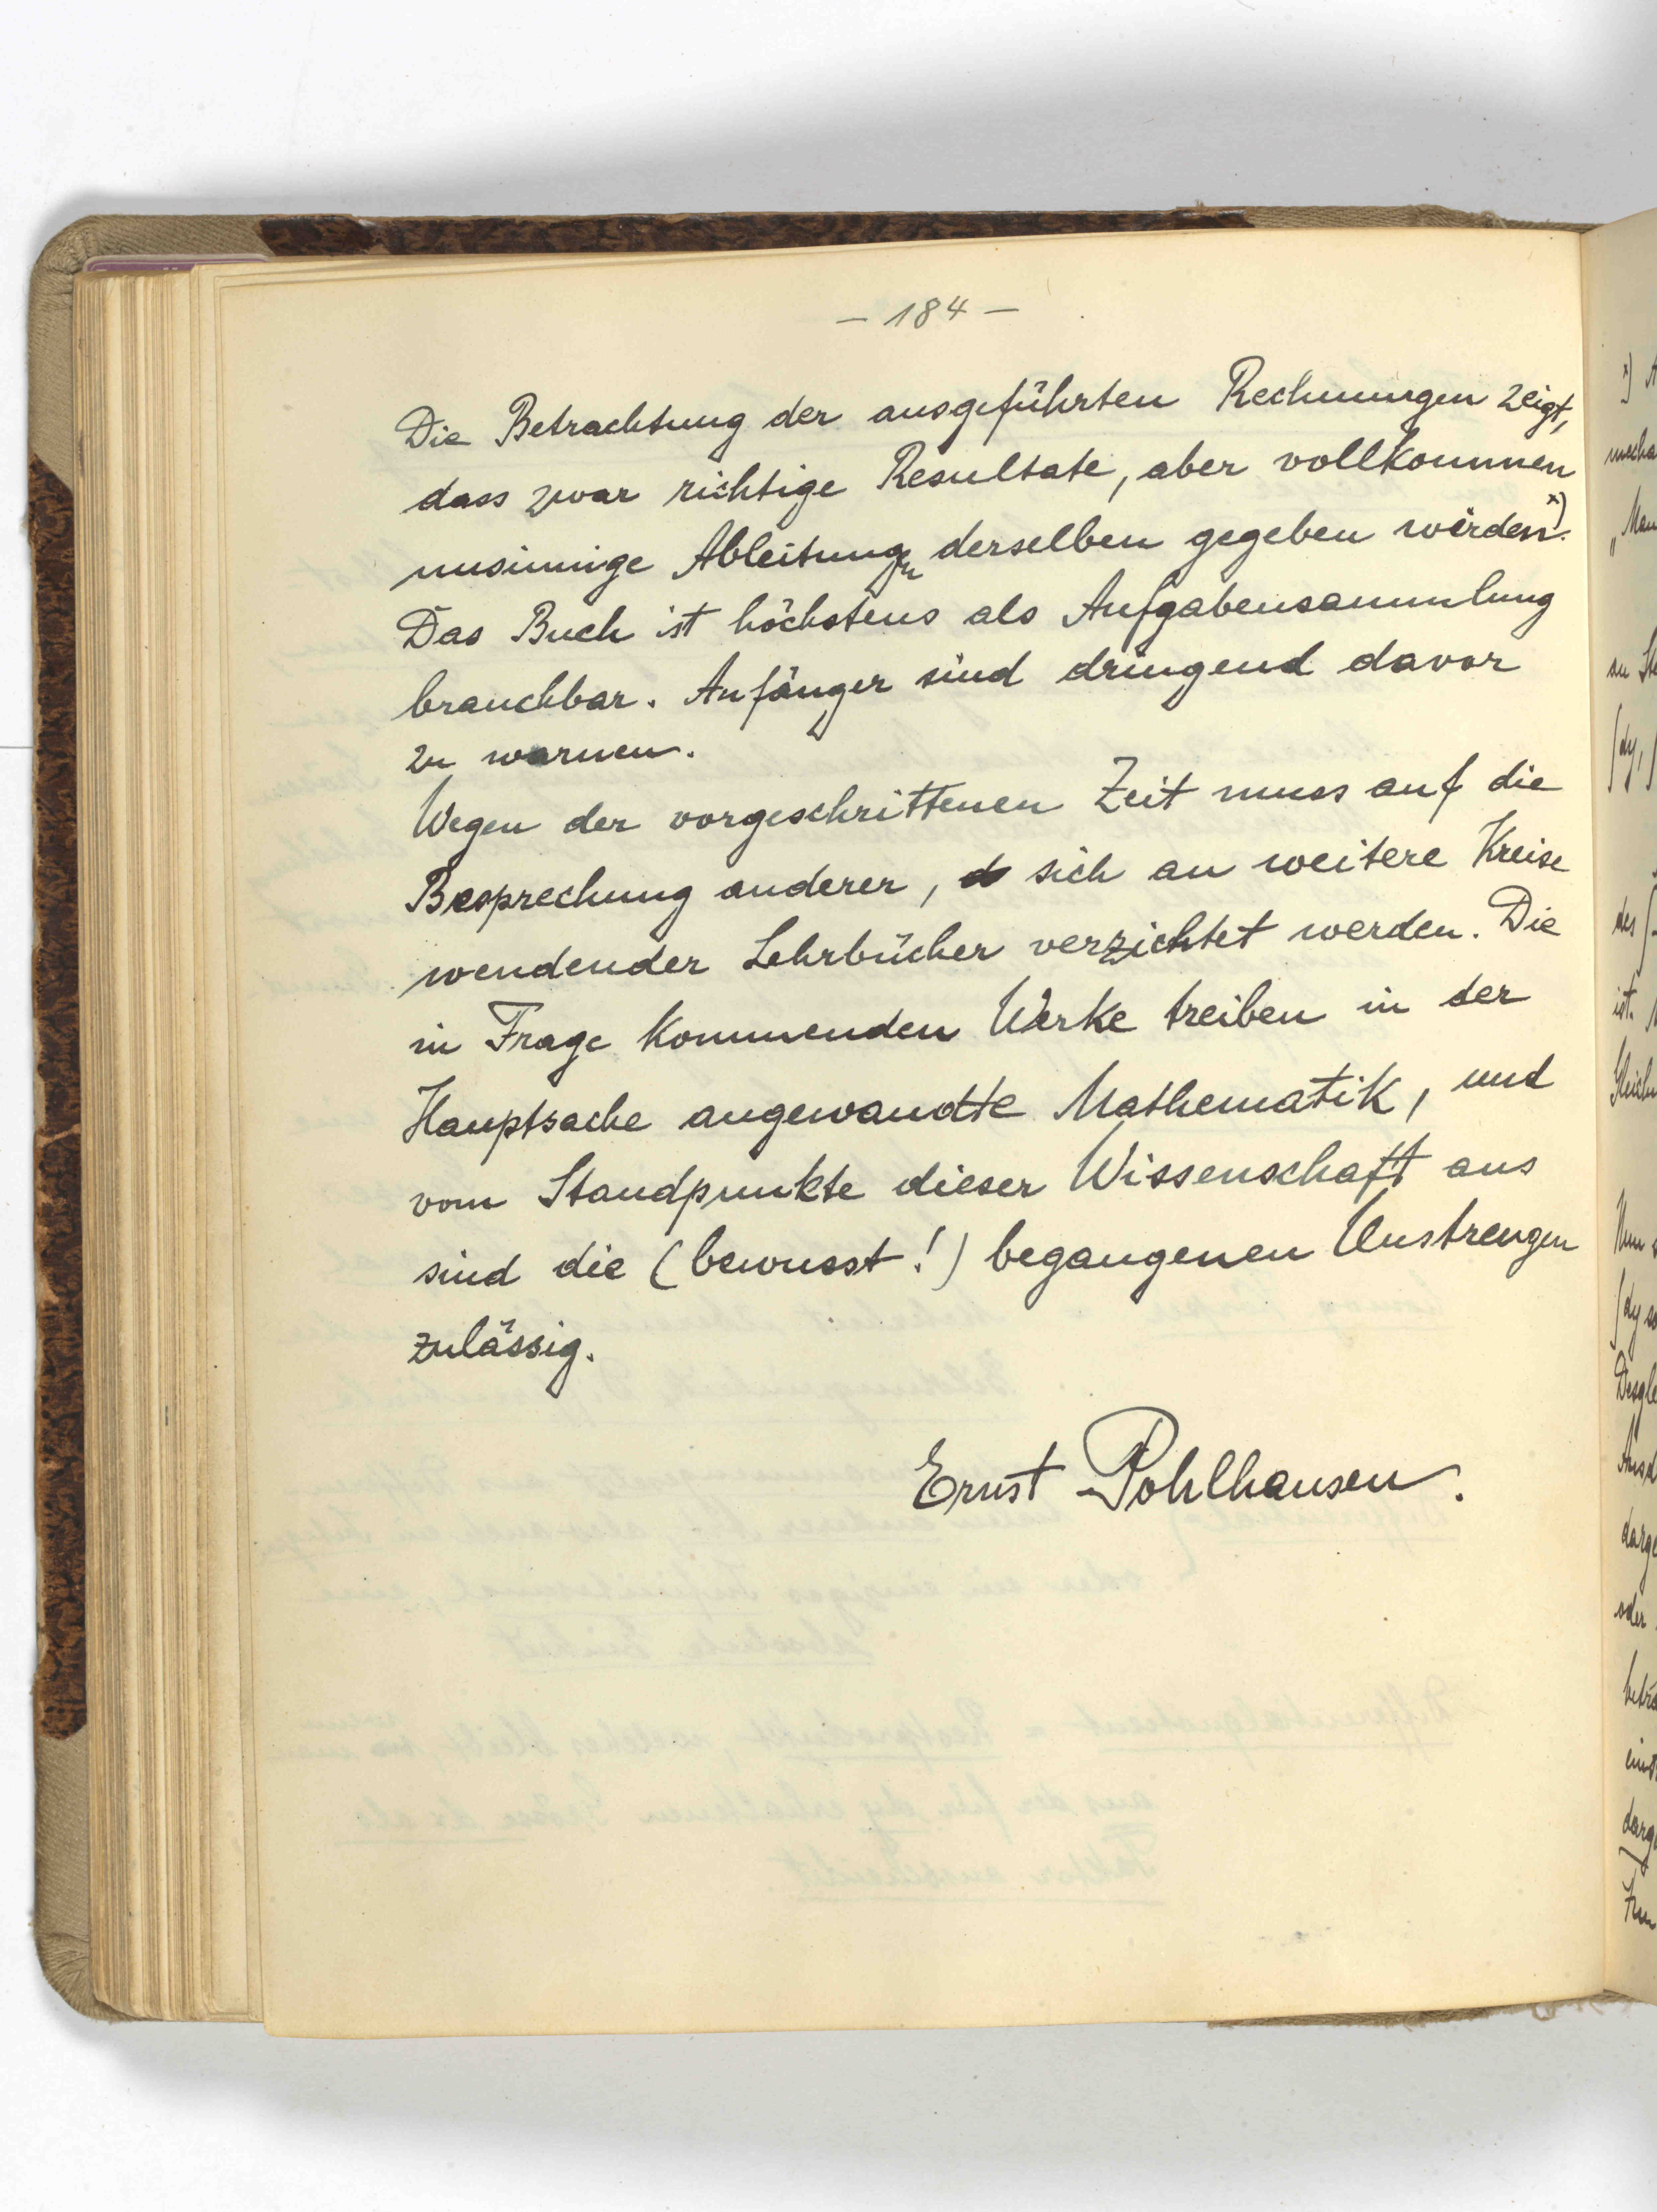 – 184 –
Die Betrachtung der ausgeführten Rechnungen zeigt,
dass zwar richtige Resultate, aber vollkommen
unsinnige Ableitungen derselben gegeben würden x).
Das Buch ist höchstens als Aufgabensammlung
brauchbar. Anfänger sind dringend davor
zu warnen.
Wegen der vorgeschrittenen Zeit muss auf die
Besprechung anderer, sich an weitere Kreise
wendender Lehrbücher verzichtet werden. Die
in Frage kommenden Werke treiben in der
Hauptsache angewandte Mathematik, und
vom Standpunkte dieser Wissenschaft aus
sind die (bewusst!) begangenen Unstrengen
zulässig.
Ernst Pohlhausen.